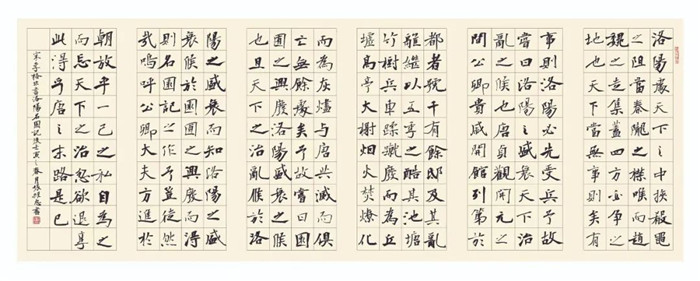 洛陽處天下之中挾殽黽
之阻當秦隴之襟喉而趙
魏之走集蓋四方必爭之
地也天下當無事則矣有
事則洛陽必先受兵予故
嘗曰洛陽之盛衰天下治
亂之候也唐貞觀開元之
間公卿貴戚開館列第於
都者號千有餘邸及其亂
離繼以五季之酷其池塘
竹樹兵車蹂蹴廢而為丘
墟高亭大榭煙火焚燎化
而為灰燼與唐共滅而俱
亡無餘處矣予故嘗曰園
囿之興廢洛陽盛衰之候
也且天下之治亂候於洛
陽之盛衰而知洛陽之盛
衰候於園圃之廢興而得
則名園記之作予豈徒然
哉嗚呼公卿大夫方進於
朝放乎一己之私自為之
而忘天下之治忽欲退享
此得乎唐之末路是已
宋李格非書洛陽名園記後壬寅之春月張書